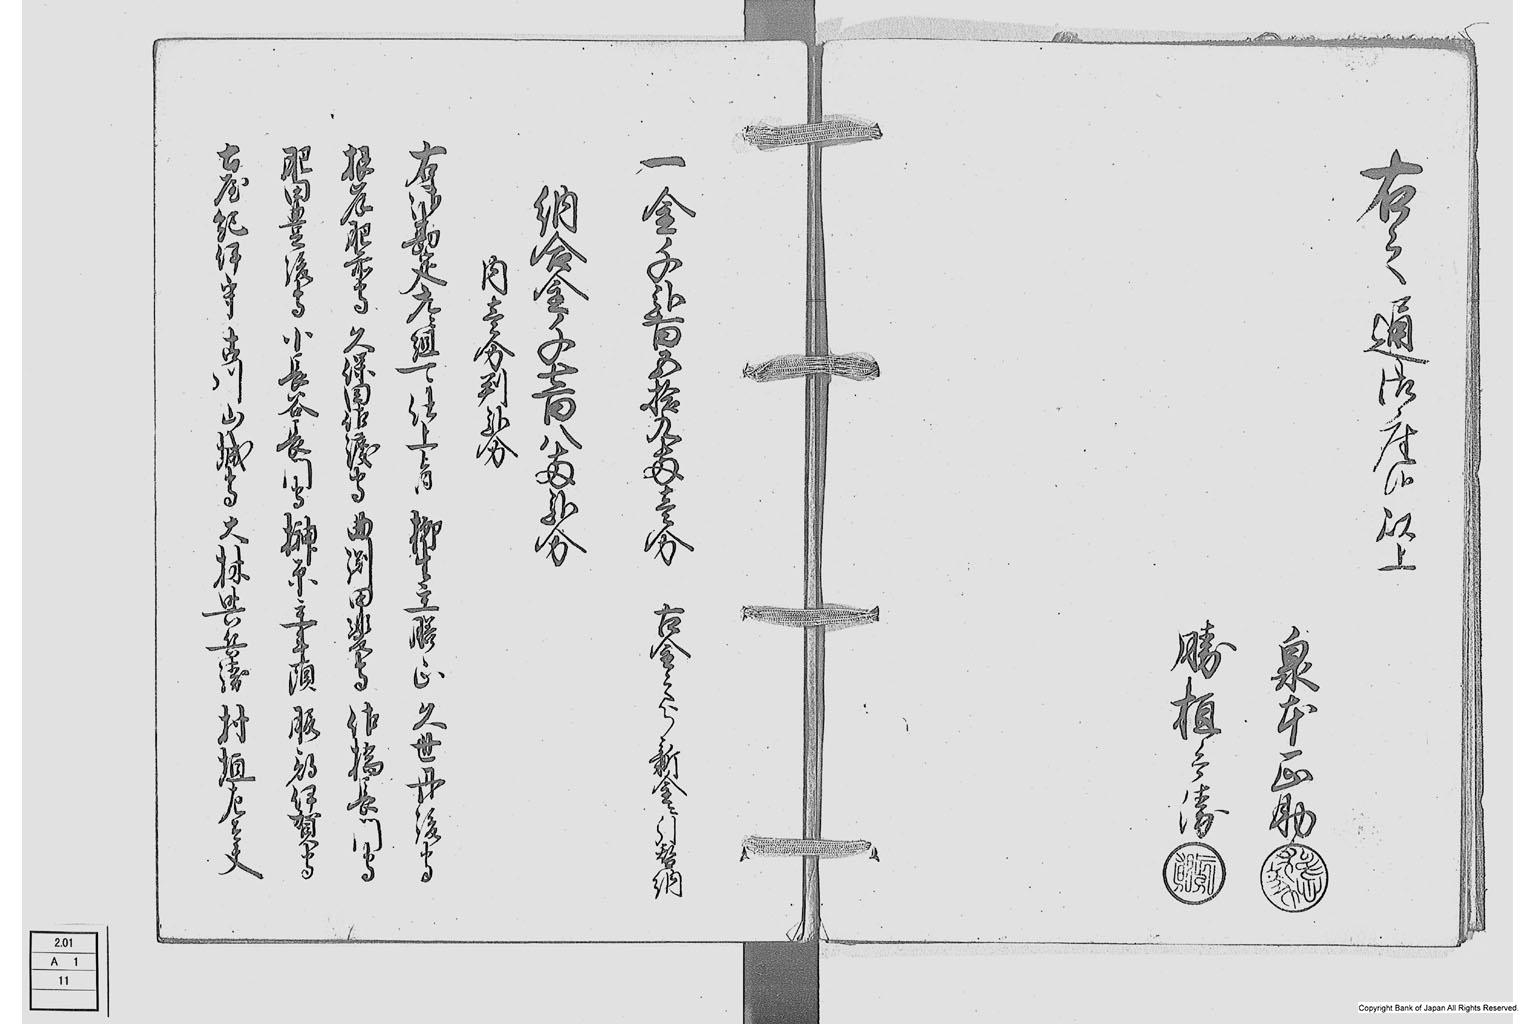 右之通御座候以上
泉本正助
勝植兵衛
一金千弐百五拾九両壱分 古金之分新金ニ引替納
納合金千七百八両弐分
内壱分判弐分
右御勘定者組ニ而仕上ケ 柳生主膳正 久世丹後守
根岸肥前守 久保田佐渡守 曲渕甲斐守 佐橋長門守
肥田豊後守 小長谷長門守 榊原主計頭 服部伊賀守
古屋紀伊守 古川山城守 大林与兵衛 村垣左太夫
2.01
A 1
11
Copyright Bank of Japan All Rights Reserved.